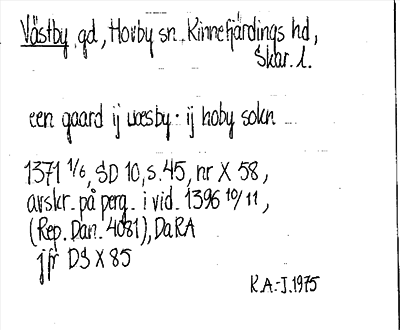 Västby gd, Hovby sn. Kinnefjärdings hd,
Skar. l.
een gaard ij uæsby · ij hoby sokn
1371 1/6, SD 10, s. 45, nr X 58,
avskr. på perg. i vid. 1396 10/11,
(Rep. Dan. 4081), DaRA
jfr DS X 85
K.A.-J. 1975